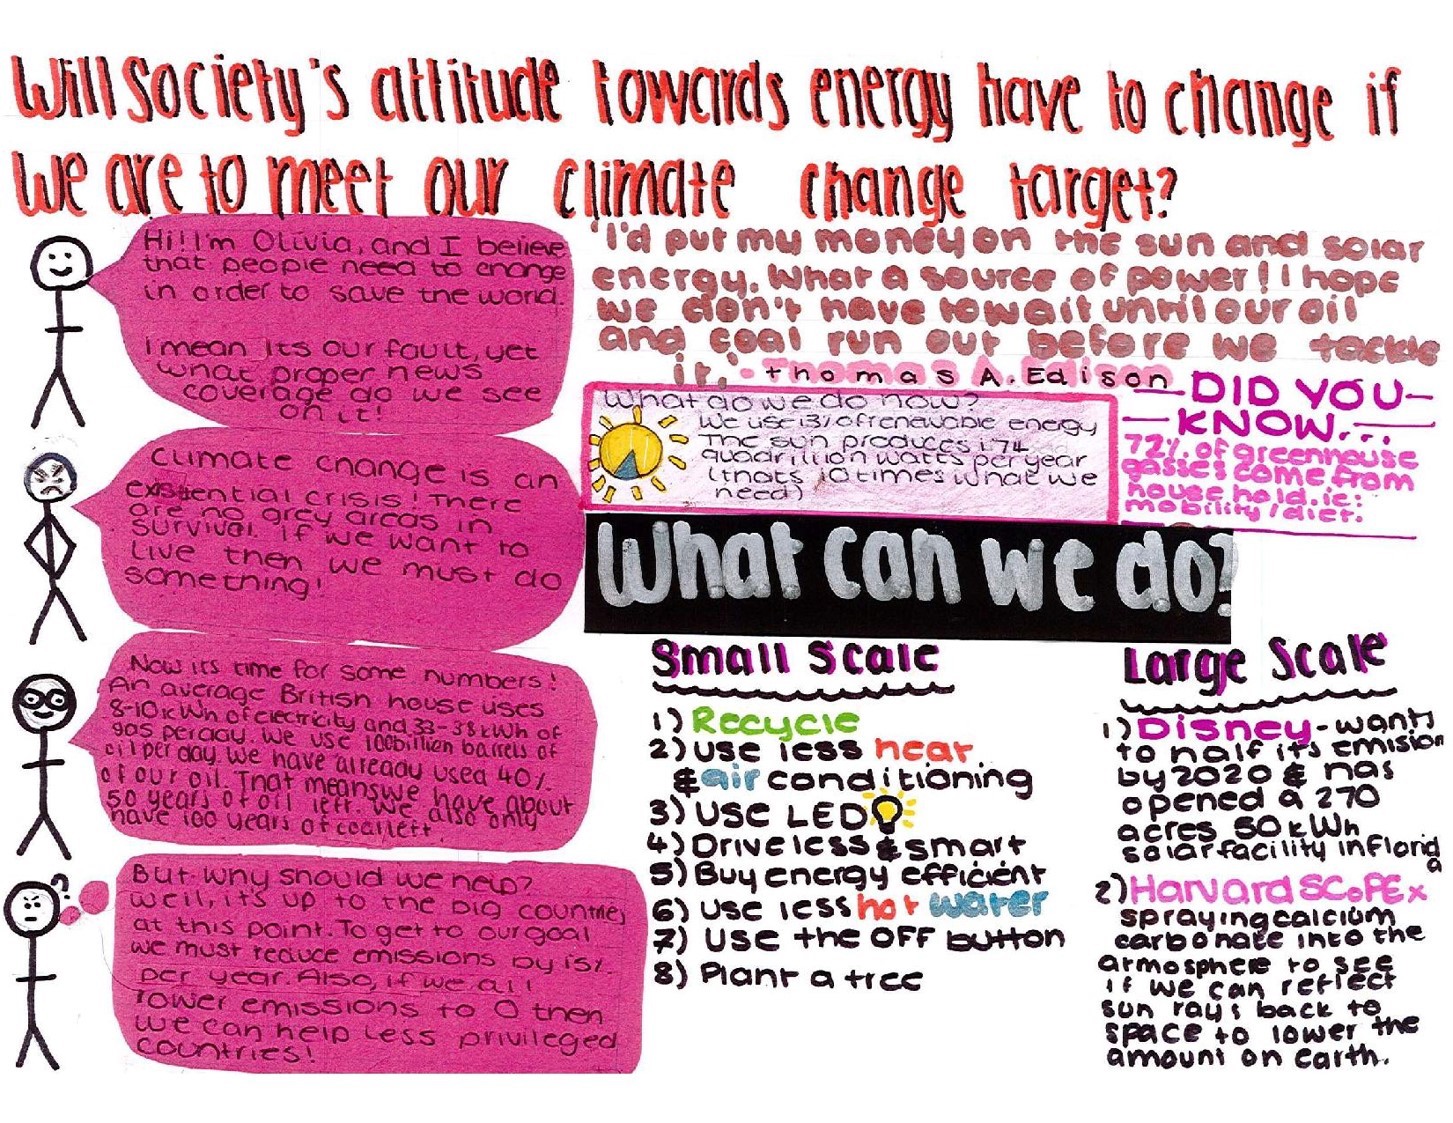 Will Society's attitude towards energy have to change if
we are to meet our climate change target?
Hi! I'm Olivia, and I believe
that people need to change
in order to save the world.
I mean its our fault, yet
what proper news
coverage do we see
on it!
Climate change is an
existential crisis! There
are no grey areas in
survival. if we want to
live then we must do
something!
Now its time for some numbers!
An average British house uses
8-10kWh of electricity and 33-38kWh of
gas per day. We use 100billion barrels of
oil per day. We have already used 40%
of our oil. That means we have about
50 years of oil left. We also only
have 100 years of coal left.
But why should we help?
Well, it's up to the big countries
at this point. To get to our goal
we must reduce emissions by 15%
per year. Also, if we all
lower emissions to 0 then
we can help less privileged
countries!
'I'd put my money on the sun and solar
energy. What a source of power! I hope
we don't have to wait until our oil
and coal run out before we tackle
it. - Thomas A. Edison
What do we do now?
We use 13% of renewable energy
The sun produces 174
quadrillion watts per year
(thats 10 times what we
need)
DID YOU
KNOW...
72% of greenhouse
gasses come from
house hold. ie:
mobility/diet.
What can we do?
Small Scale
1) Recycle
2) use less heat
& air conditioning
3) USE LED
4) Drive less & smart
5) Buy energy efficient
6) use less hot water
7) Use the OFF button
8) Plant a tree
Large Scale
1) Disney - wants
to half its emision
by 2020 & has
opened a 270
acres 50 kWh
solar facility in Florida
2) Harvard SCoPEx
spraying calcium
carbonate into the
atmosphere to see
if we can reflect
sun rays back to
space to lower the
amount on earth.